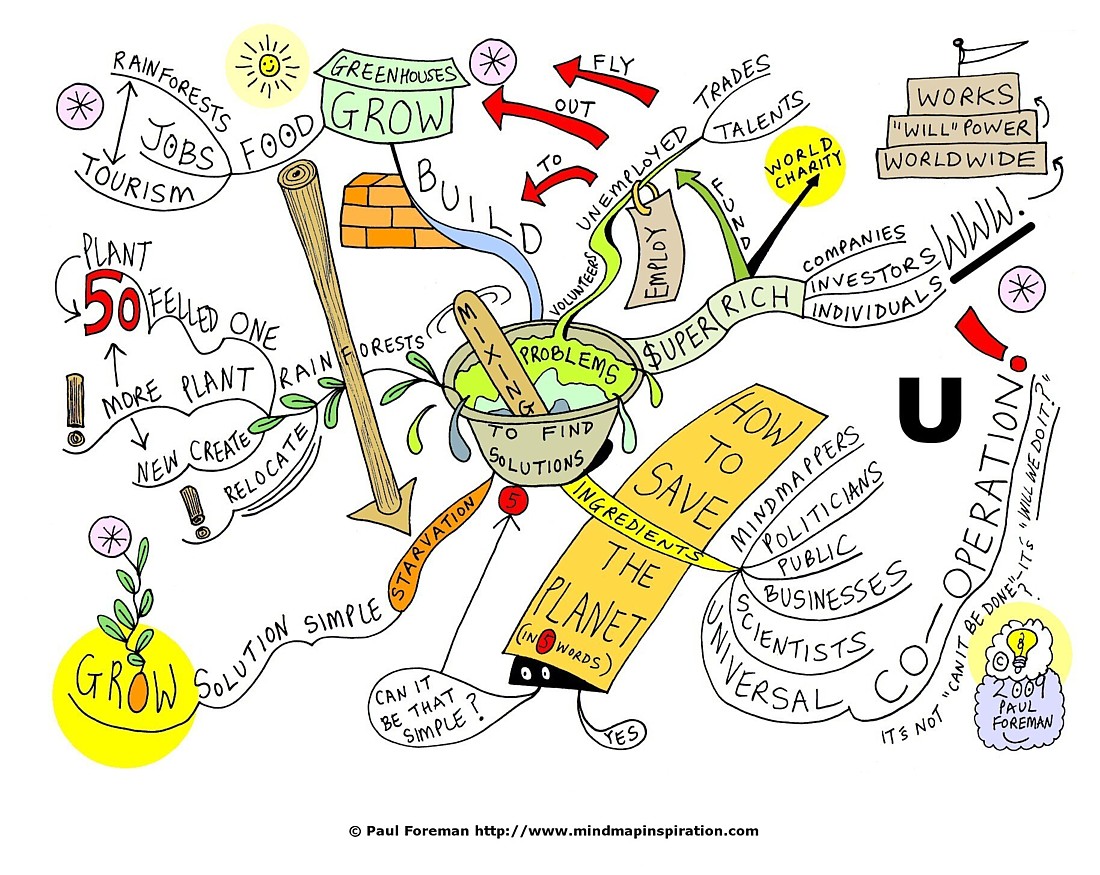 RAINFORESTS
JOBS
TOURISM
FOOD
GREENHOUSES
GROW
BUILD
FLY
OUT
TO
TRADES
TALENTS
UNEMPLOYED
VOLUNTEERS
EMPLOY
FUND
WORLD
CHARITY
WORKS
"WILL" POWER
WORLDWIDE
WWW.
COMPANIES
INVESTORS
INDIVIDUALS
$UPER RICH
PLANT
50
FELLED ONE
MORE PLANT
NEW CREATE
RELOCATE
RAIN FORESTS
MIXING
PROBLEMS
TO FIND
SOLUTIONS
5
STARVATION
SOLUTION SIMPLE
GROW
INGREDIENTS
HOW
TO
SAVE
THE
PLANET
(IN 5 WORDS)
CAN IT
BE THAT
SIMPLE?
YES
MINDMAPPERS
POLITICIANS
PUBLIC
BUSINESSES
SCIENTISTS
UNIVERSAL
CO-OPERATION
U
IT'S NOT "CAN IT BE DONE"-IT'S "WILL WE DO IT?"
?
©
2009
PAUL
FOREMAN
© Paul Foreman http://www.mindmapinspiration.com